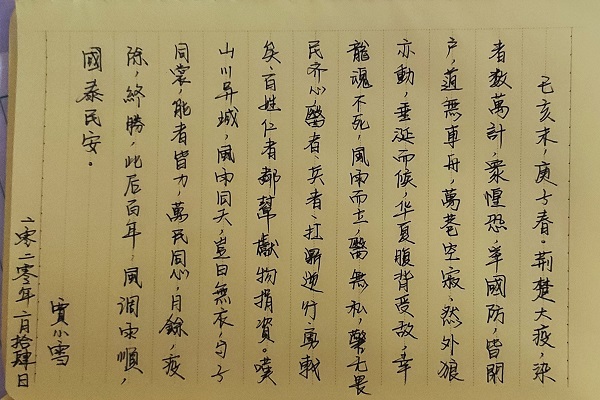 己亥末，庚子春。荆楚大疫，染
者数萬計，衆惶恐，举國防，皆閉
户，道無車舟，萬巷空寂、然外狼
亦動，垂涎而候，华夏腹背受敌，幸
龍魂不死，風雨而立，醫無私，藥无畏
民齐心，醫者、兵者、扛鼎逆行，勇戰
矣、百姓仁者都幫獻物捐資。嘆
山川异域，風雨同天，豈曰無衣，与子
同裳，能者皆力，萬民同心，月餘，疫
除，終勝，此后百年，風調雨順，
國泰民安。
小雪
二零二零年二月拾肆日